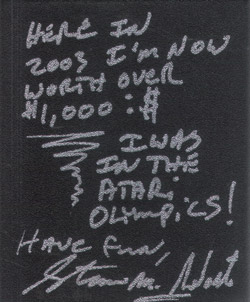 HERE IN
2003 I'M NOW
WORTH OVER
$1,000 :$
I WAS
IN THE
ATARI
OLYMPICS!
HAVE FUN,